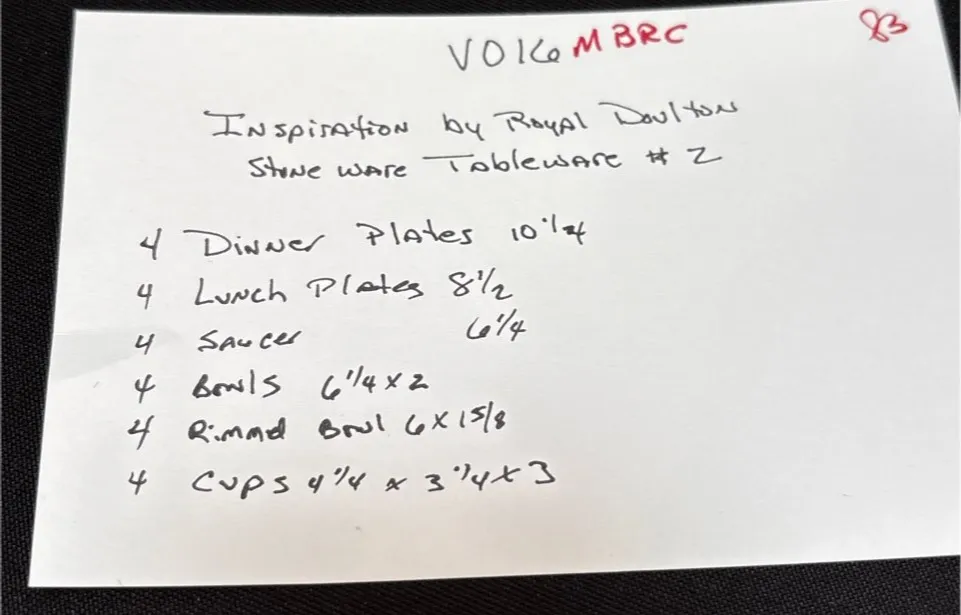 VO16 MBRC 83
Inspiration by Royal Doulton
Stoneware Tableware # 2
4 Dinner Plates 10 1/4
4 Lunch Plates 8 1/2
4 Saucer 6 1/4
4 Bowls 6 1/4 x 2
4 Rimmed Bowl 6 x 1 5/8
4 Cups 4 1/4 x 3 1/4 x 3